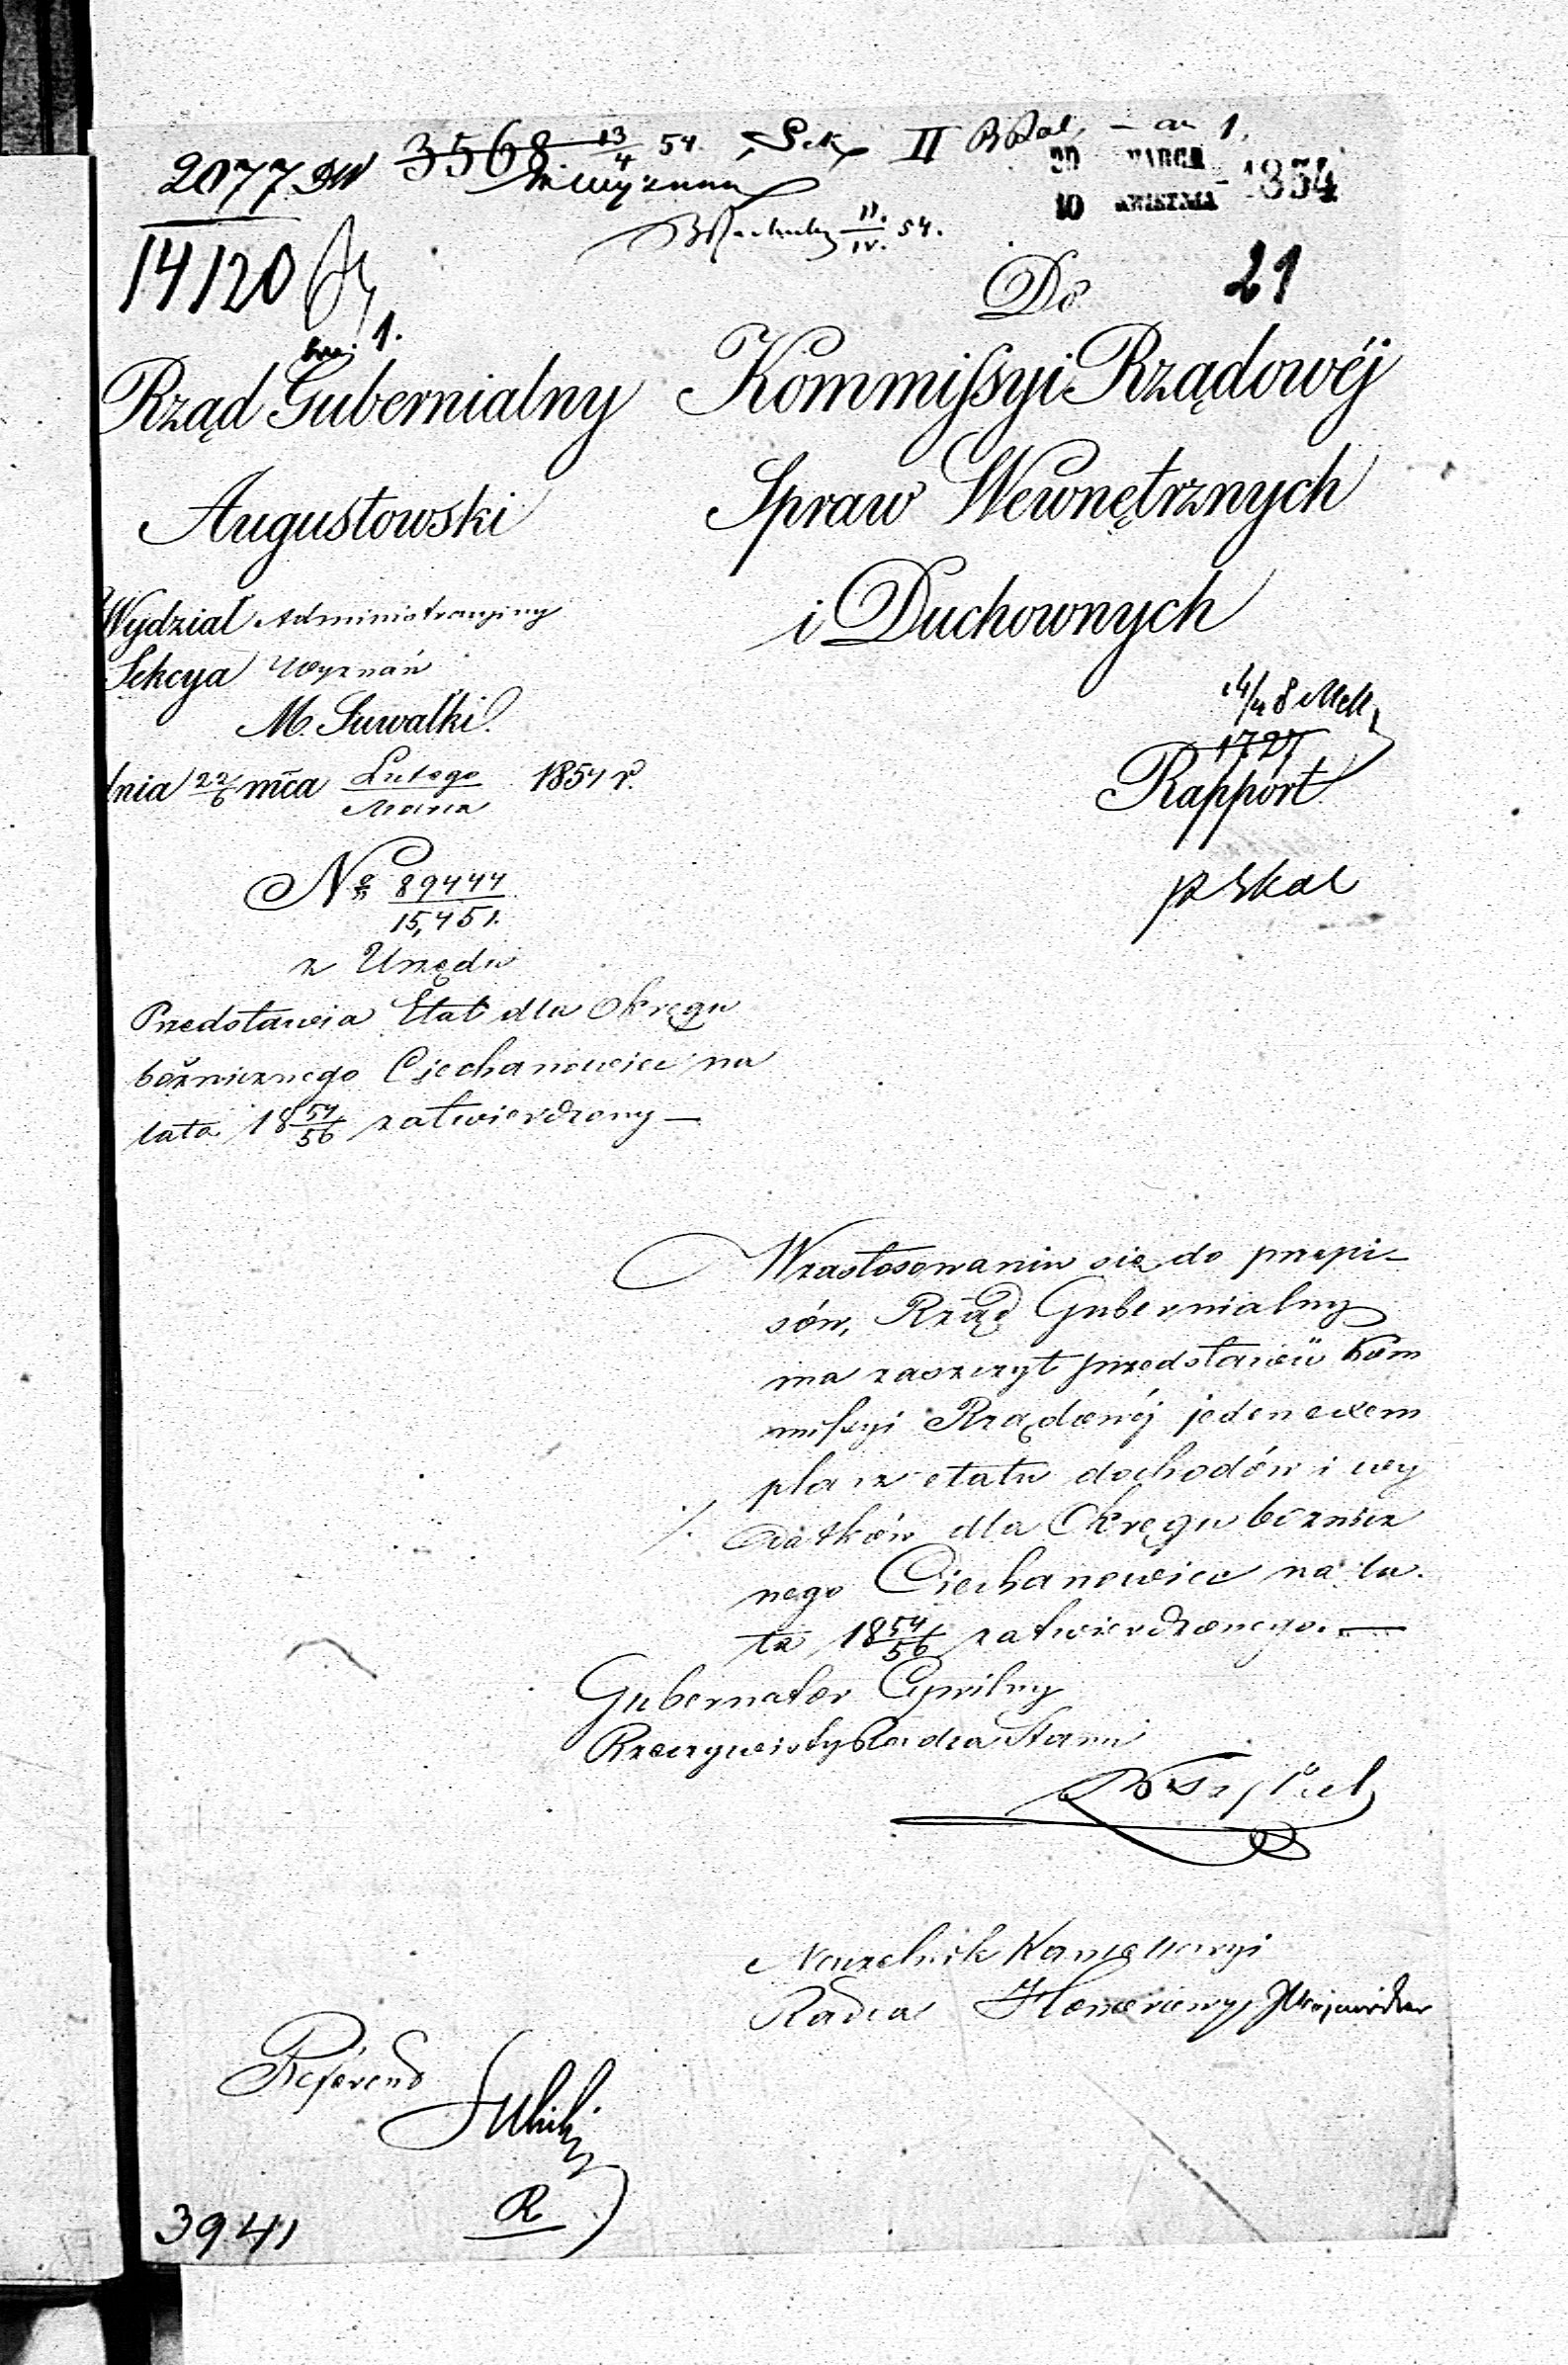 2077 DW 3568. 13/4 54. Sek II
1.
30 MARCA
10 KWIETNIA 1854
II./IV. 54.
14120
1.
Do
21
Rząd Gubernialny
Augustowski
Kommissyi Rządowéj
Spraw Wewnętrznych
i Duchownych
Wydział Administracyjny
Sekcya Wyznań
M. Suwałki.
dnia 22/6 mca Lutego/Marca 1854 r.
1727
Rapport
No 89444/15,451.
z Urzędu
Przedstawia Etat dla Okręgu
bożnicznego Ciechanowiec na
lata 18 54/56 zatwierdzony —
Wzastosowaniu się do przepi-
sów, Rząd Gubernialny
ma zaszczyt przedstawić Kom
missyi Rządowéj jeden exem
plarz etatu dochodów i wy
datków dla Okręgu bóżnicz
nego Ciechanowiec na la-
ta 18 54/56 zatwierdzonego. —
Gubernator Cywilny
Rzeczywisty Radca Stanu
Naczelnik Kancellaryi
Radca Honorowy
Referend
R
3941